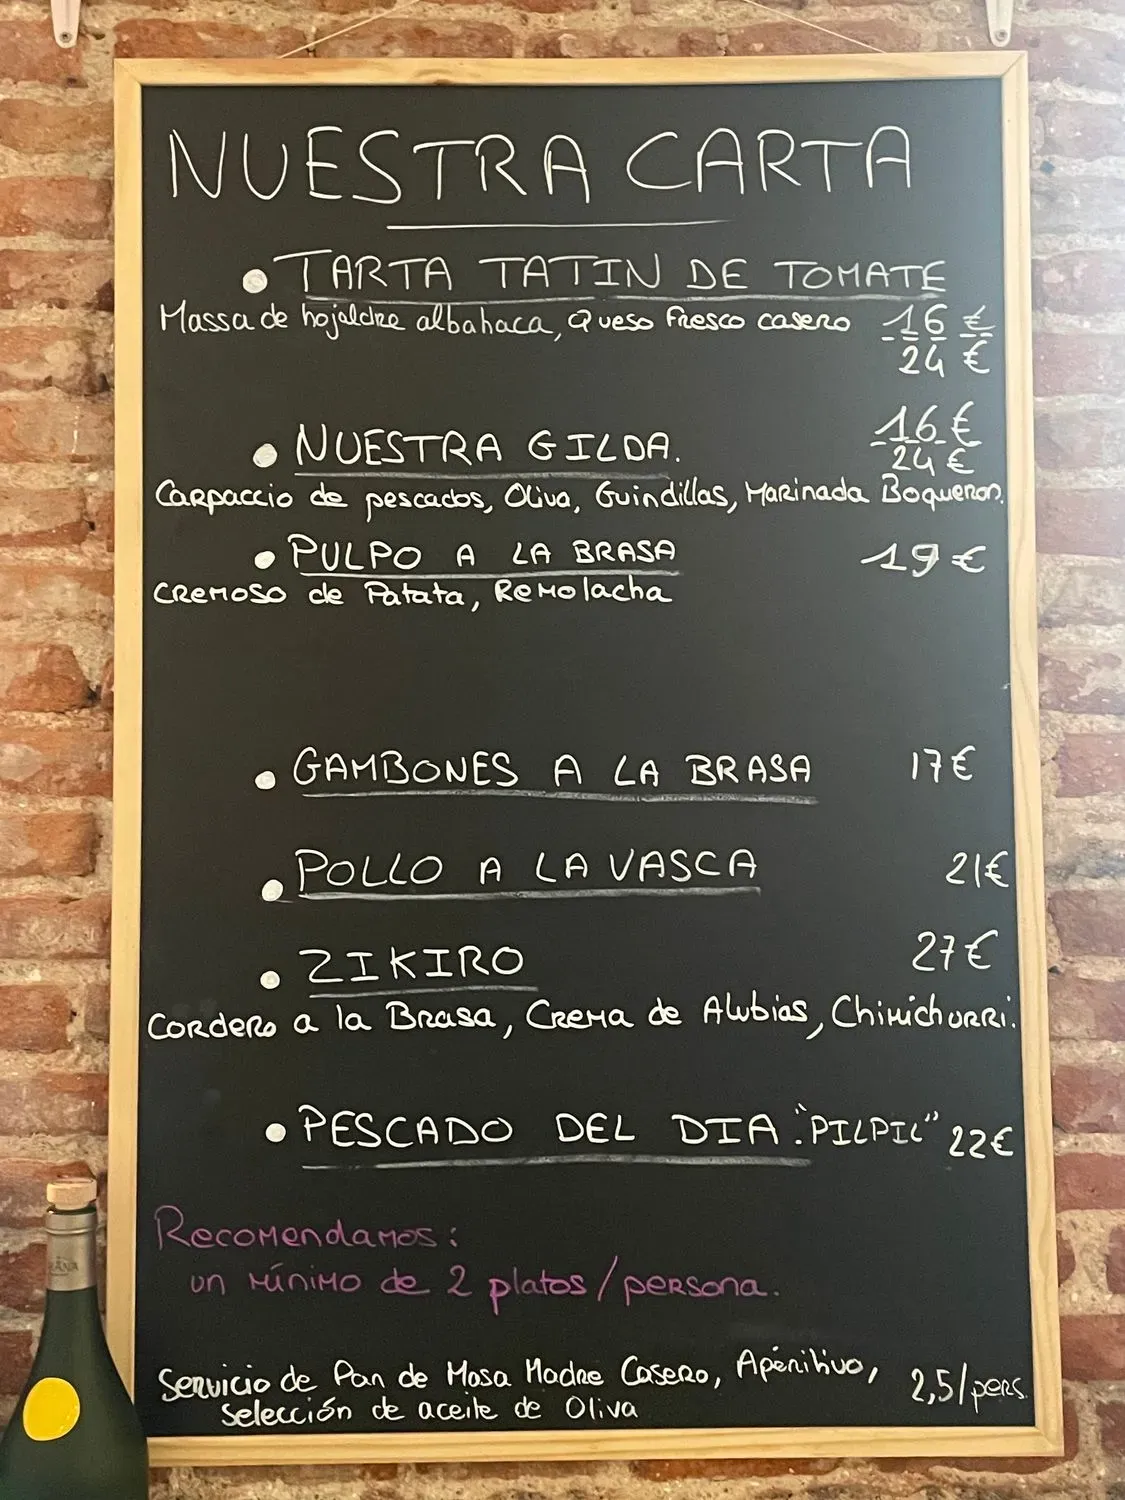 NUESTRA CARTA
• TARTA TATIN DE TOMATE
Massa de hojaldre albahaca, Queso Fresco casero 16 €
24 €
16 €
• NUESTRA GILDA. 24 €
Carpaccio de pescados, Oliva, Guindillas, Marinada Boqueron.
• PULPO A LA BRASA 19 €
CREMOSO de Patata, Remolacha
• GAMBONES A LA BRASA 17€
• POLLO A LA VASCA 21€
• ZIKIRO 27€
CORDERO a la Brasa, Crema de Alubias, Chimichurri.
• PESCADO DEL DIA: "PILPIL" 22€
Recomendamos:
un mínimo de 2 platos/persona.
Servicio de Pan de Masa Madre Casero, Apéritivo, 2,5/pers.
selección de aceite de Oliva